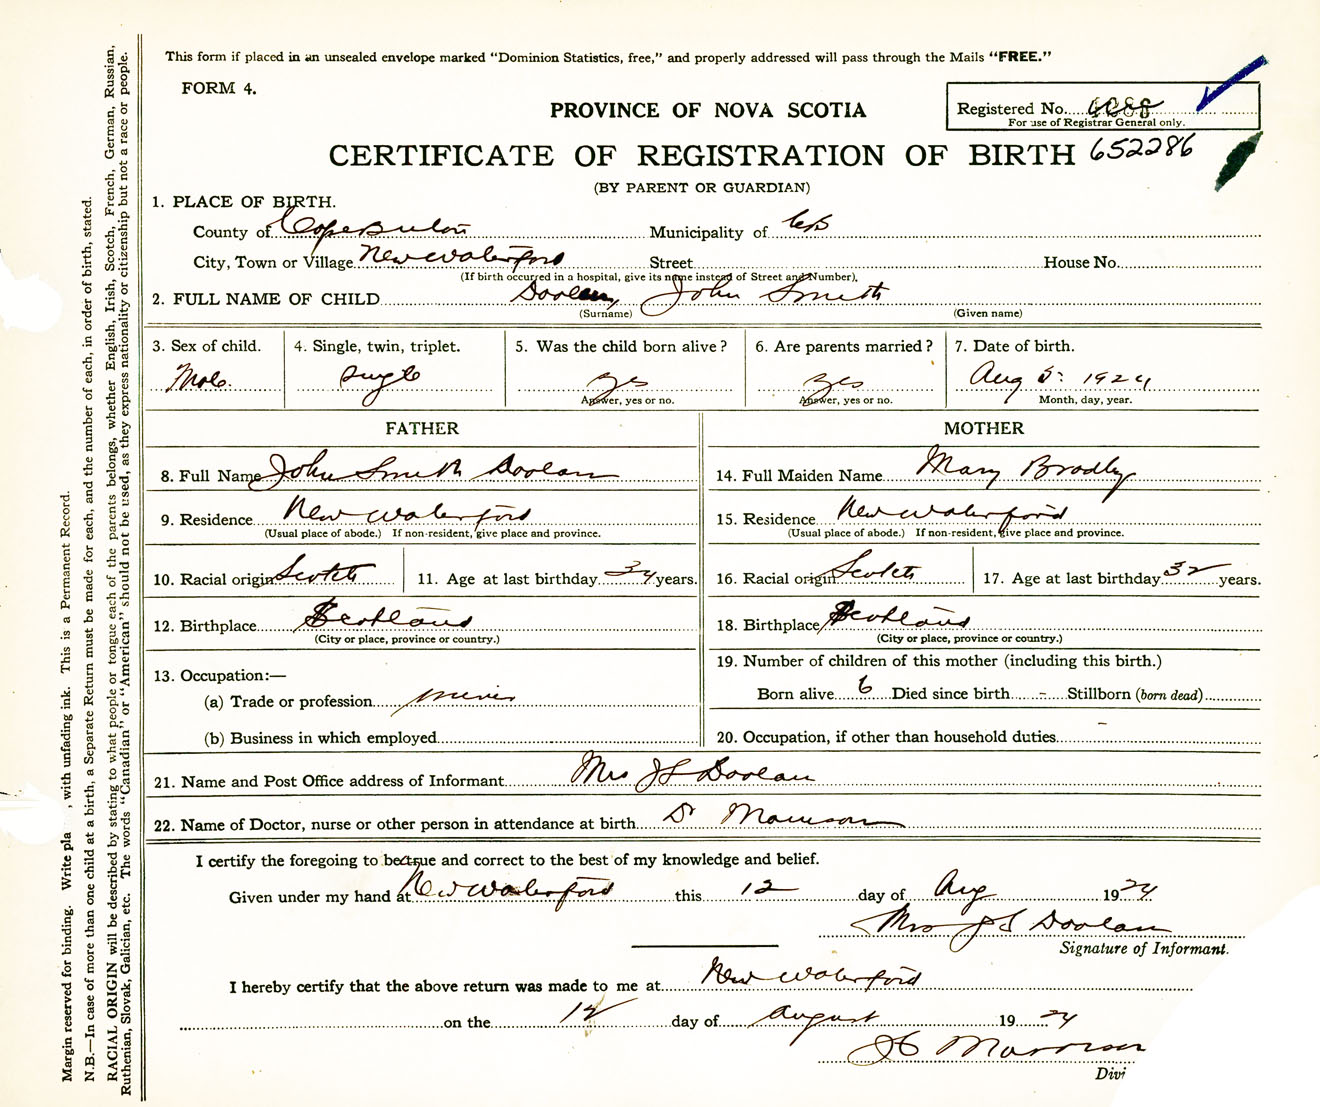 This form if placed in an unsealed envelope marked "Dominion Statistics, free," and properly addressed will pass through the Mails "FREE."
FORM 4.
PROVINCE OF NOVA SCOTIA
Registered No.
For use of Registrar General only.
CERTIFICATE OF REGISTRATION OF BIRTH 652286
(BY PARENT OR GUARDIAN)
1. PLACE OF BIRTH.
County of Cape Breton Municipality of CB
City, Town or Village New Waterford Street House No.
(If birth occurred in a hospital, give its name instead of Street and Number),
2. FULL NAME OF CHILD Doolan, John Smith
(Surname) (Given name)
3. Sex of child. 4. Single, twin, triplet. 5. Was the child born alive? 6. Are parents married? 7. Date of birth.
Male. Single yes yes Aug 5: 1924
Answer, yes or no. Answer, yes or no. Month, day, year.
FATHER MOTHER
8. Full Name John Smith Doolan 14. Full Maiden Name Mary Bradley
9. Residence New Waterford 15. Residence New Waterford
(Usual place of abode.) If non-resident, give place and province. (Usual place of abode.) If non-resident, give place and province.
10. Racial origin Scotch 11. Age at last birthday 34 years. 16. Racial origin Scotch 17. Age at last birthday 32 years.
12. Birthplace Scotland 18. Birthplace Scotland
(City or place, province or country.) (City or place, province or country.)
13. Occupation:— 19. Number of children of this mother (including this birth.)
(a) Trade or profession miner Born alive 6 Died since birth - Stillborn (born dead)
(b) Business in which employed 20. Occupation, if other than household duties -
21. Name and Post Office address of Informant Mrs J S Doolan
22. Name of Doctor, nurse or other person in attendance at birth Dr Morrison
I certify the foregoing to be true and correct to the best of my knowledge and belief.
Given under my hand at New Waterford this 12 day of Aug 1924
Mrs J S Doolan
Signature of Informant.
I hereby certify that the above return was made to me at New Waterford
on the 12 day of August 1924
Morrison
Divi
Margin reserved for binding. Write pla , with unfading ink. This is a Permanent Record.
N.B.—In case of more than one child at a birth, a Separate Return must be made for each, and the number of each, in order of birth, stated.
RACIAL ORIGIN will be described by stating to what people or tongue each of the parents belongs, whether English, Irish, Scotch, French, German, Russian,
Ruthenian, Slovak, Galician, etc. The words "Canadian" or "American" should not be used, as they express nationality or citizenship but not a race or people.